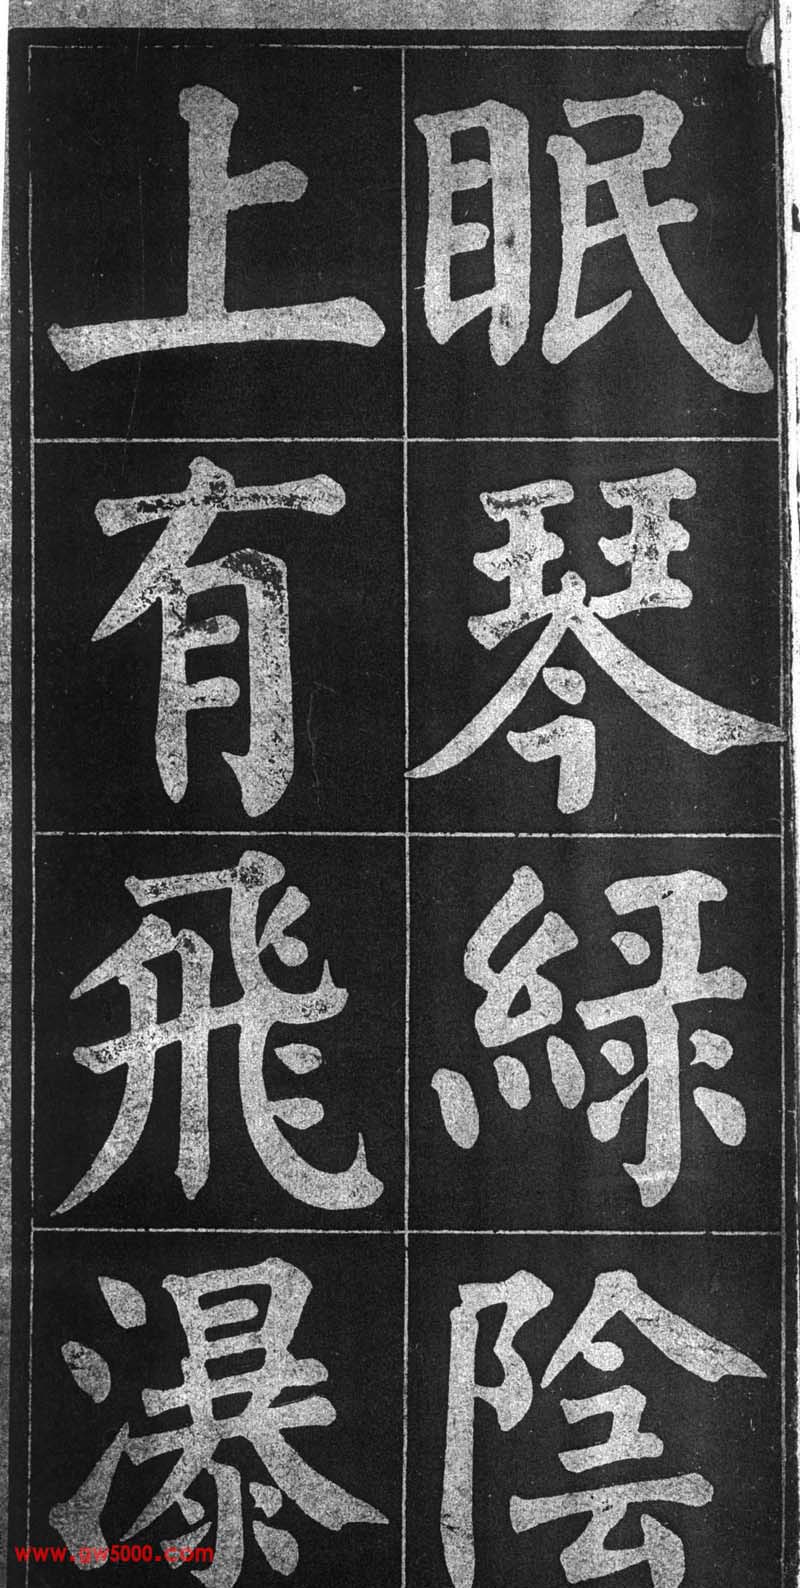 眠琴綠陰
上有飛瀑
www.gw5000.com